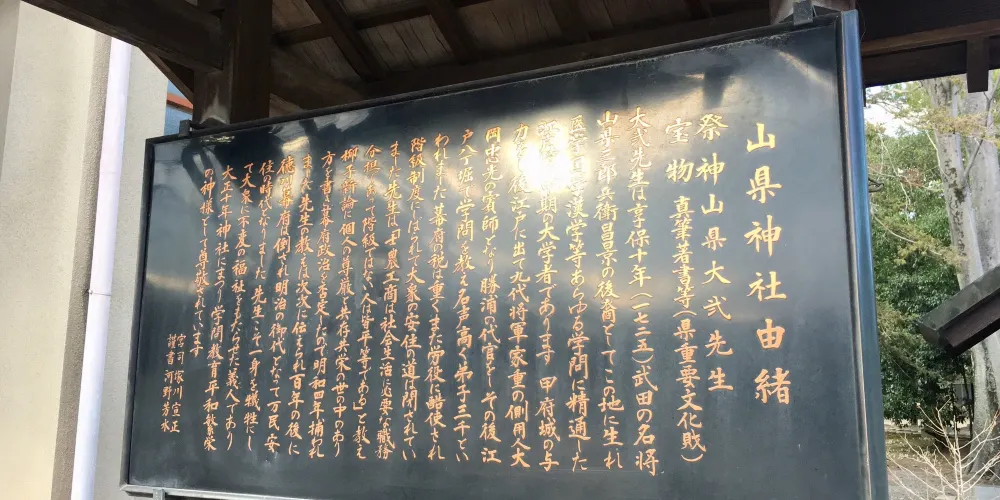 山県神社由緒
祭神山県大弐先生
宝物 真筆著書等(県重要文化財)
大弐先生は享保十年(一七二五)武田の名将
山県三郎兵衛昌景の後裔としてこの地に生れ
医学 漢学等あらゆる学問に精通した
期の大学者であります 甲府城の与
力 後江戸に出て九代将軍家重の側用人大
岡忠光の賓師となり勝浦の代官をし その後江
戸八丁堀で学問を教え名声高く弟子三千とい
われました 幕府の税は重くまた労役に酷使され
階級制度にしばられて大衆の安住の道は閉されてい
ました 先生は「士農工商は社会生活に必要な職務
分担であって階級ではない人は皆平等である」と教え
柳子新論に個人の尊厳と共存共栄の世の中のあり
方を書き幕府政治を否定したので明和四年捕われ
ました 先生の教えは次次に伝えられ百年の後に
徳川幕府は倒され明治の御代となって万民安
住の時代となりました 先生こそ一身を犠牲にし
て大衆に不変の福祉をもたらせた義人であり
大正十年神社にまつり学問教育平和繁栄
の神様として尊敬されています
宮司 塚川宣正
謹書 河野芳水